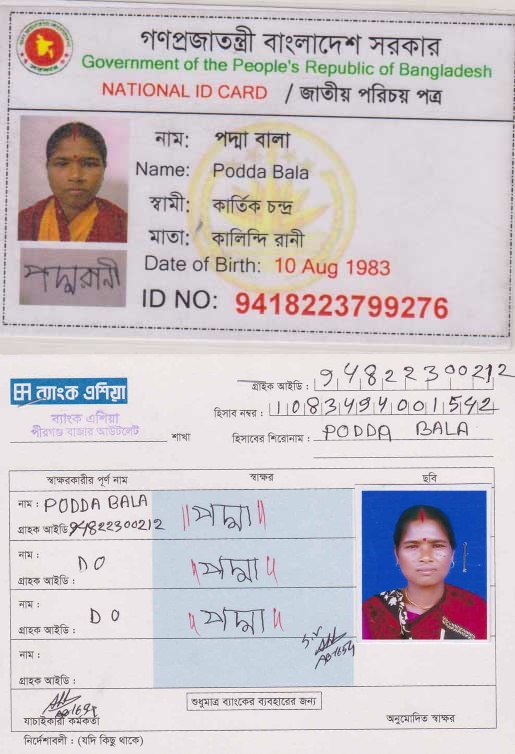 গণপ্রজাতন্ত্রী বাংলাদেশ সরকার
Government of the People's Republic of Bangladesh
NATIONAL ID CARD / জাতীয় পরিচয় পত্র
নাম: পদ্মা বালা
Name: Podda Bala
স্বামী: কার্তিক চন্দ্র
মাতা: কালিন্দি রানী
Date of Birth: 10 Aug 1983
পদ্মরানী
ID NO: 9418223799276
গ্রাহক আইডি : 94822300212
ব্যাংক এশিয়া
হিসাব নম্বর : 1083494001542
ব্যাংক এশিয়া
পীরগঞ্জ বাজার আউটলেট
শাখা
হিসাবের শিরোনাম : PODDA BALA
স্বাক্ষরকারীর পূর্ণ নাম স্বাক্ষর ছবি
নাম : PODDA BALA
গ্রাহক আইডি : 94822300212
পদ্মা
নাম : DO
গ্রাহক আইডি :
পদ্মা
নাম : DO
গ্রাহক আইডি :
পদ্মা
নাম :
গ্রাহক আইডি :
শুধুমাত্র ব্যাংকের ব্যবহারের জন্য
যাচাইকারী কর্মকর্তা অনুমোদিত স্বাক্ষর
নির্দেশাবলী : (যদি কিছু থাকে)